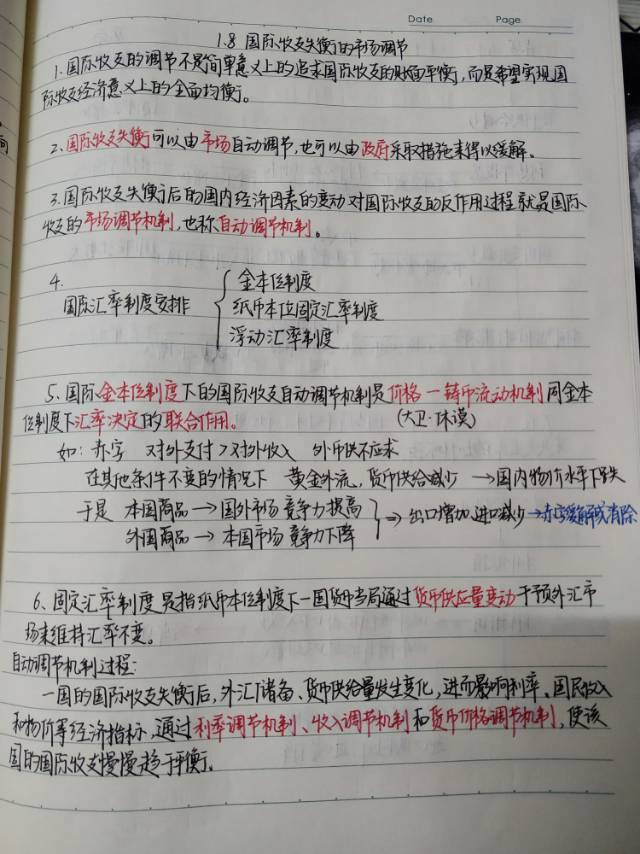 Date Page
1.8 国际收支失衡的市场调节
1.国际收支的调节不是简单意义上的追求国际收支的账面平衡,而是希望实现国
际收支经济意义上的全面均衡。
2、国际收支失衡可以由市场自动调节,也可以由政府采取措施来得以缓解。
3.国际收支失衡后的国内经济因素的变动对国际收支的反作用过程就是国际
收支的市场调节机制,也称自动调节机制。
4.
金本位制度
国际汇率制度安排 纸币本位固定汇率制度
浮动汇率制度
5、国际金本位制度下的国际收支自动调节机制是价格—铸币流动机制同金本
位制度下汇率决定的联合作用。 (大卫·休谟)
如:赤字 对外支付>对外收入 外币供不应求
在其他条件不变的情况下 黄金外流,货币供给减少 →国内物价水平下跌
于是 本国商品→国外市场竞争力提高
外国商品→本国市场竞争力下降 ⇒出口增加,进口减少→赤字缓解或消除
6、固定汇率制度是指纸币本位制度下一国货币当局通过货币供应量变动干预外汇市
场来维持汇率不变。
自动调节机制过程:
一国的国际收支失衡后,外汇储备、货币供给量发生变化,进而影响利率、国民收入
和物价等经济指标,通过利率调节机制、收入调节机制和货币价格调节机制,使该
国的国际收支慢慢趋于平衡。